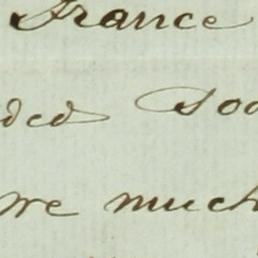 France
ded soo
re much